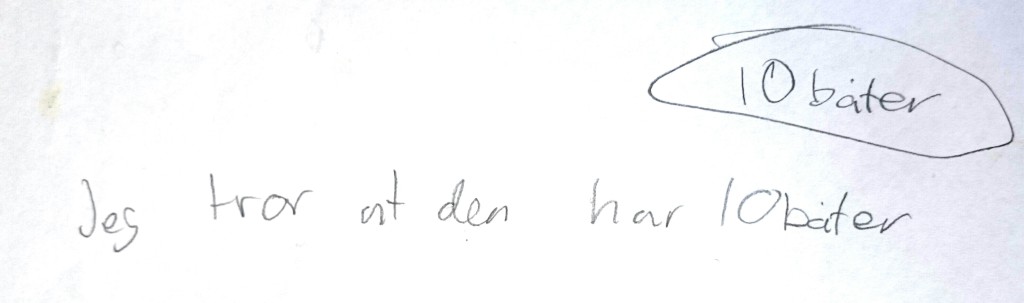 10 båter
Jeg tror at den har 10 båter